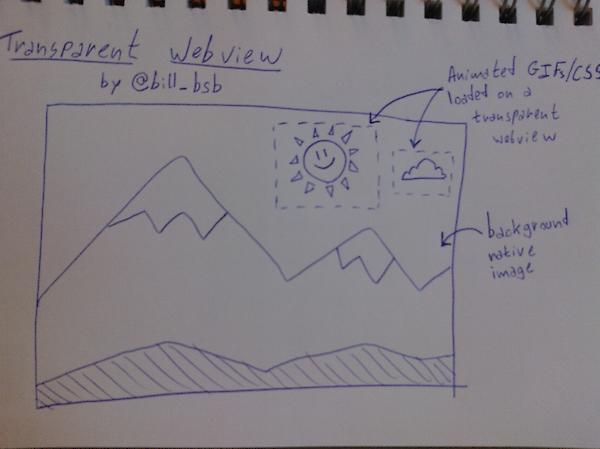 Transparent Webview
by @bill_bsb
Animated GIFs/CSS
loaded on a
transparent
webview
background
native
image